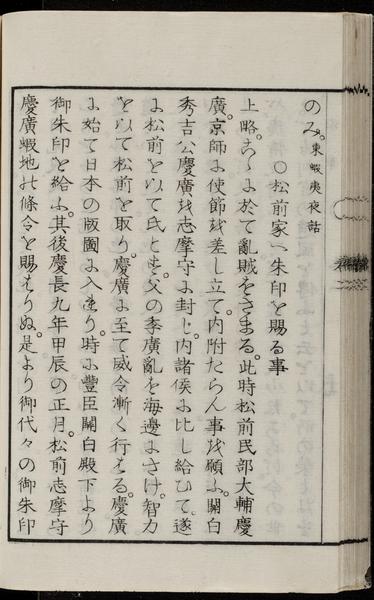 のみ。東蝦夷夜話
○松前家へ朱印を賜る事
上略こゝに於て亂賊をさまる。此時松前民部大輔慶
廣。京師に使節を差し立て。内附たらん事を願ふ。関白
秀吉公慶廣を志摩守に封じ。内諸侯に比し給ひて。遂
に松前を以て氏とす。父の季廣亂を海邊にさけ。智力
を以て松前を取り。慶廣に至て威令漸く行はる。慶廣
に始て日本の版圖に入まり。時に豐臣関白殿下より
御朱印を給ふ。其後慶長九年甲辰の正月。松前志摩守
慶廣蝦地の條令を賜はりぬ。是より御代々の御朱印